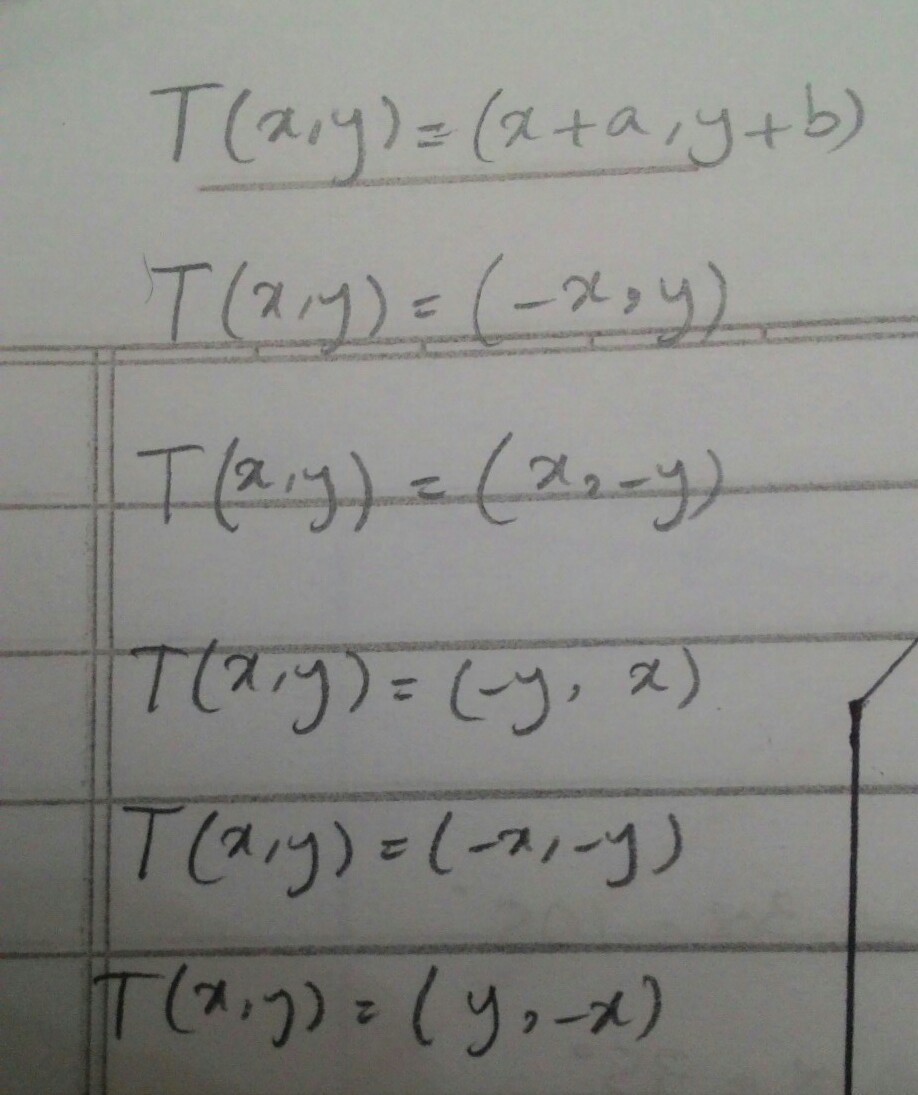 T(x,y)=(x+a,y+b)
T(x,y)=(-x,y)
T(x,y)=(x,-y)
T(x,y)=(-y, x)
T(x,y)=(-x,-y)
T(x,y)=(y,-x)